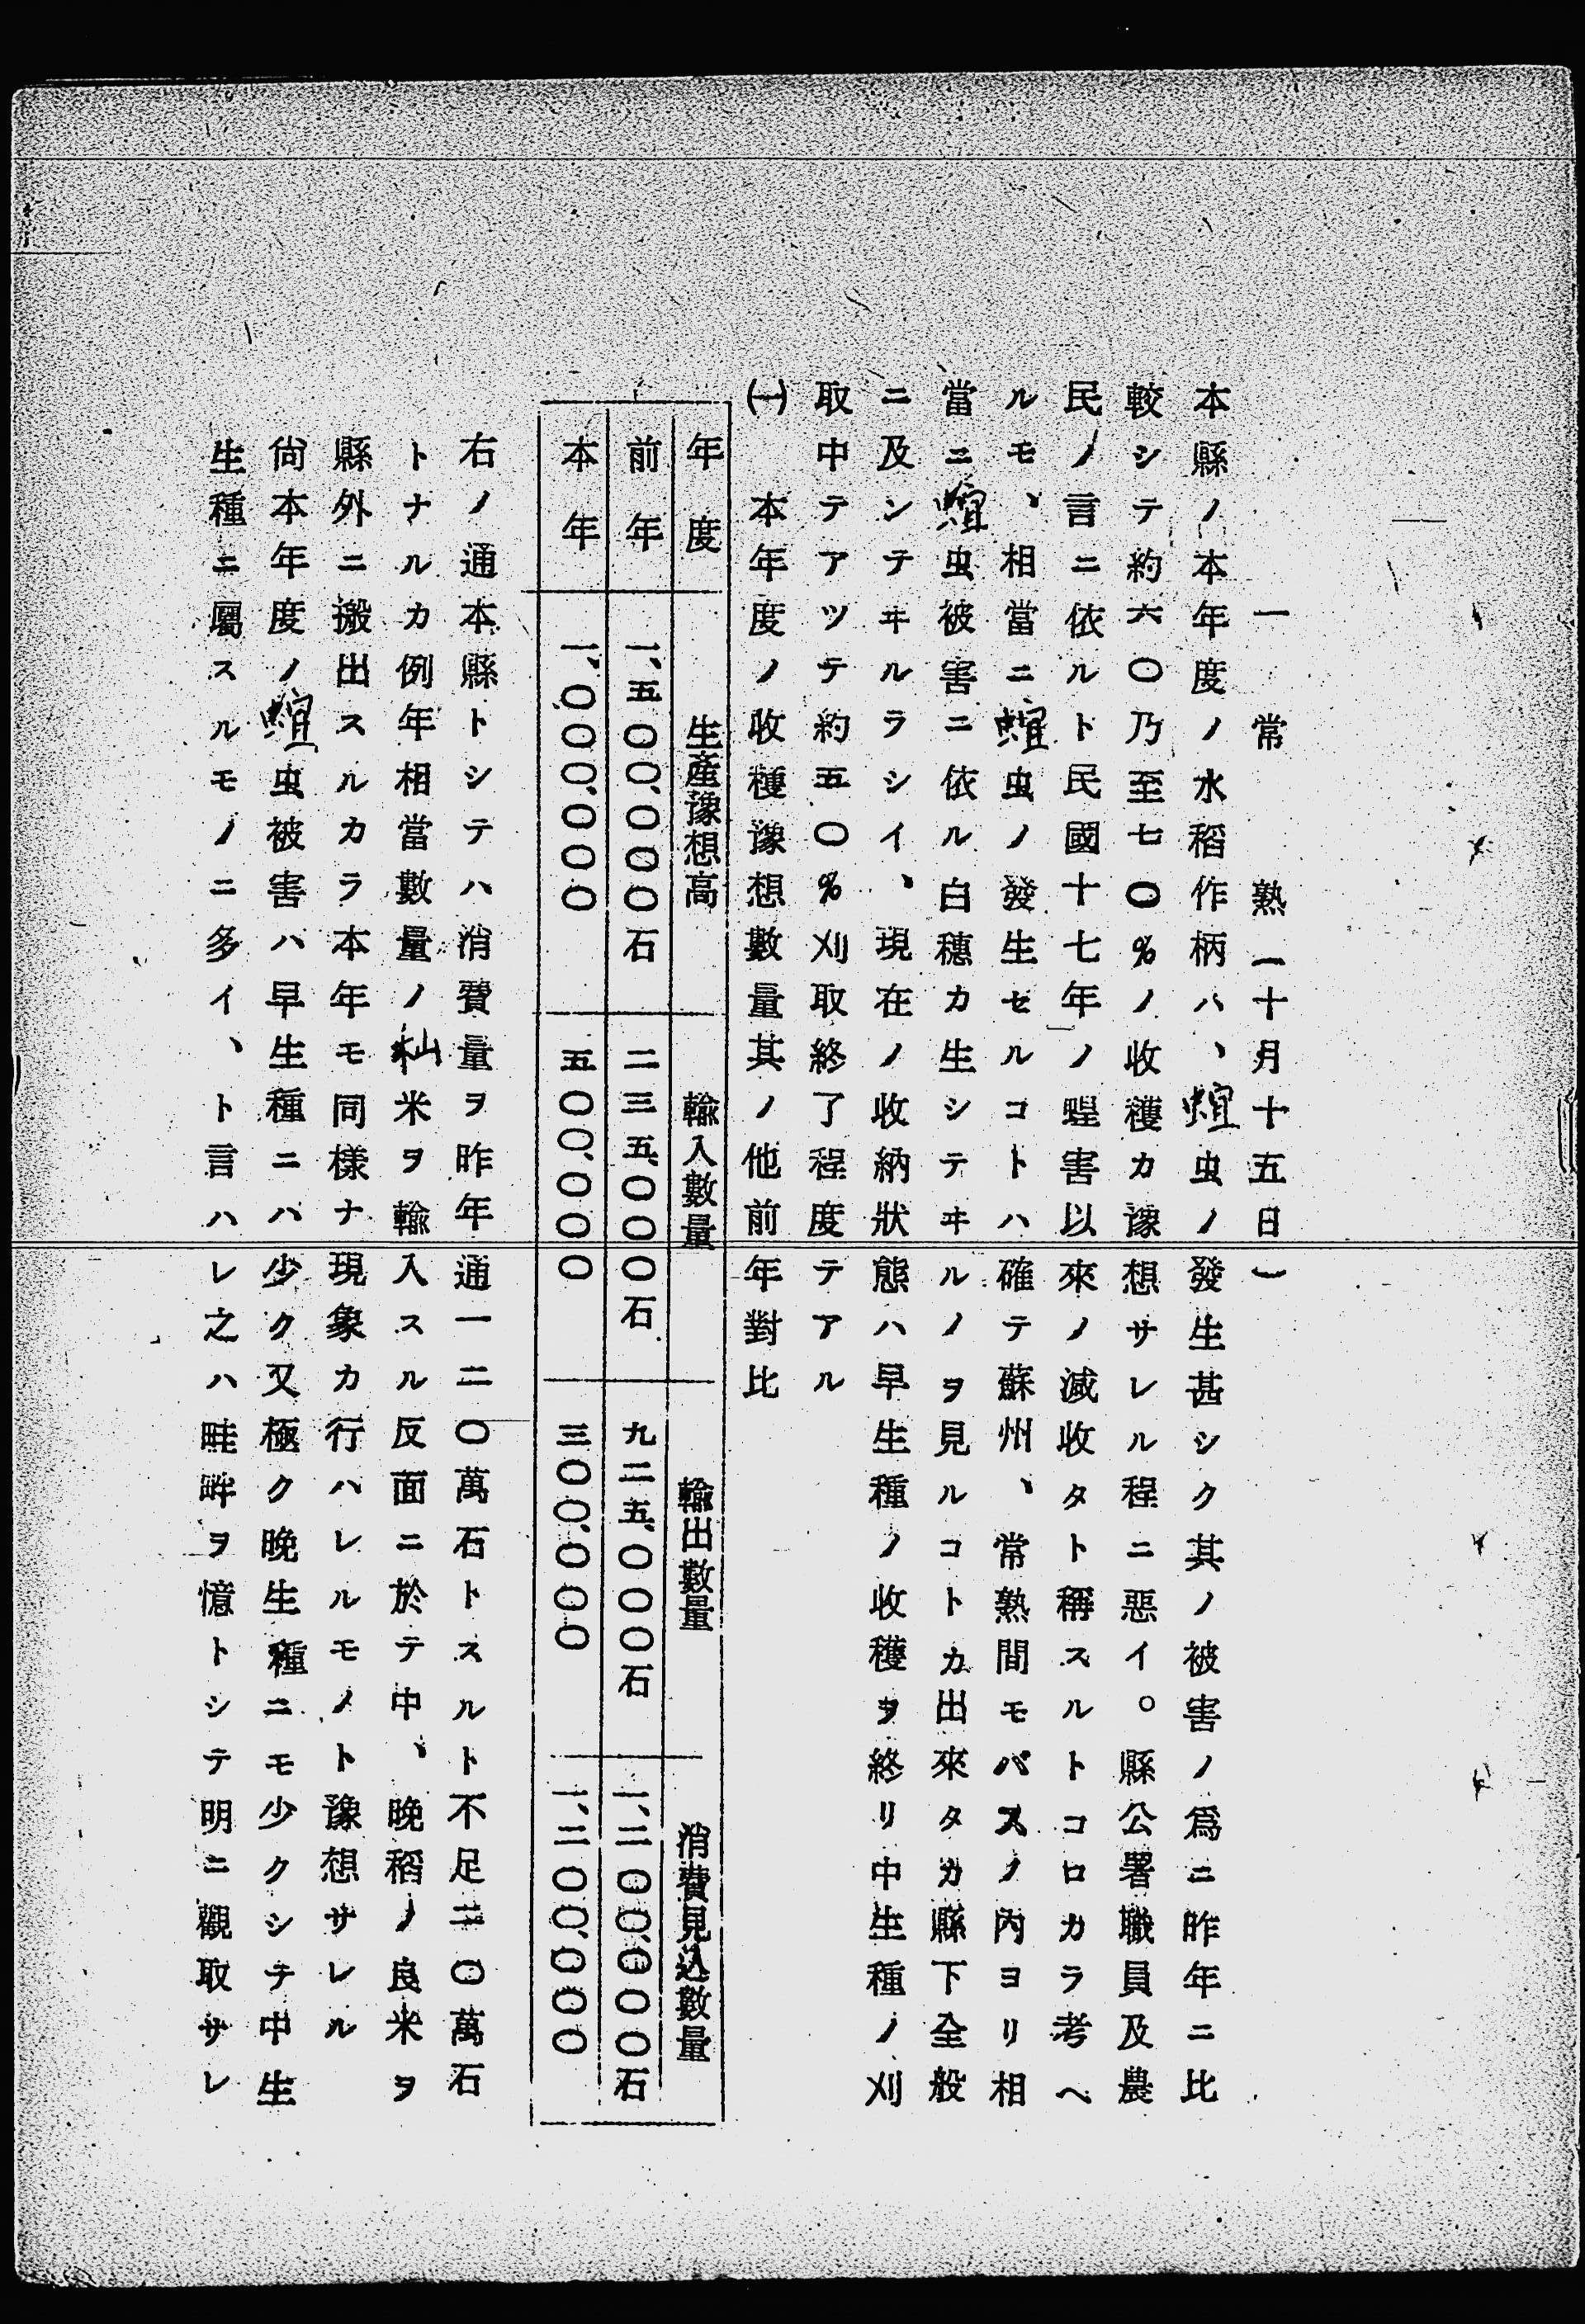 一　常　熟（十月十五日）
本縣ノ本年度ノ水稻作柄ハ、蝗虫ノ發生甚シク其ノ被害ノ爲ニ昨年ニ比
較シテ約六〇乃至七〇％ノ收穫カ豫想サレル程ニ惡イ。縣公署職員及農
民ノ言ニ依ルト民國十七年ノ蝗害以來ノ減收タト稱スルトコロカラ考ヘ
ルモ、相當ニ蝗虫ノ發生セルコトハ確テ蘇州、常熟間モバスノ內ヨリ相
當ニ蝗虫被害ニ依ル白穗カ生シテヰルノヲ見ルコトカ出來タカ縣下全般
ニ及ンテヰルラシイ、現在ノ收納狀態ハ早生種ノ收穫ヲ終リ中生種ノ刈
取中テアツテ約五〇％刈取終了程度テアル
㈠　本年度ノ收穫豫想數量其ノ他前年對比
年度　生產豫想高　輸入數量　輸出數量　消費見込數量
前年　一、五〇〇、〇〇〇石　二三五、〇〇〇石　九二五、〇〇〇石　一、二〇〇、〇〇〇石
本年　一、〇〇〇、〇〇〇　五〇〇、〇〇〇　三〇〇、〇〇〇　一、二〇〇、〇〇〇
右ノ通本縣トシテハ消費量ヲ昨年通一二〇萬石トスルト不足二〇萬石
トナルカ例年相當數量ノ秈米ヲ輸入スル反面ニ於テ中、晚稻ノ良米ヲ
縣外ニ搬出スルカラ本年モ同樣ナ現象カ行ハレルモノト豫想サレル
尙本年度ノ蝗虫被害ハ早生種ニハ少ク又極ク晚生種ニモ少クシテ中生
生種ニ屬スルモノニ多イ、ト言ハレ之ハ畦畔ヲ憶トシテ明ニ觀取サレ